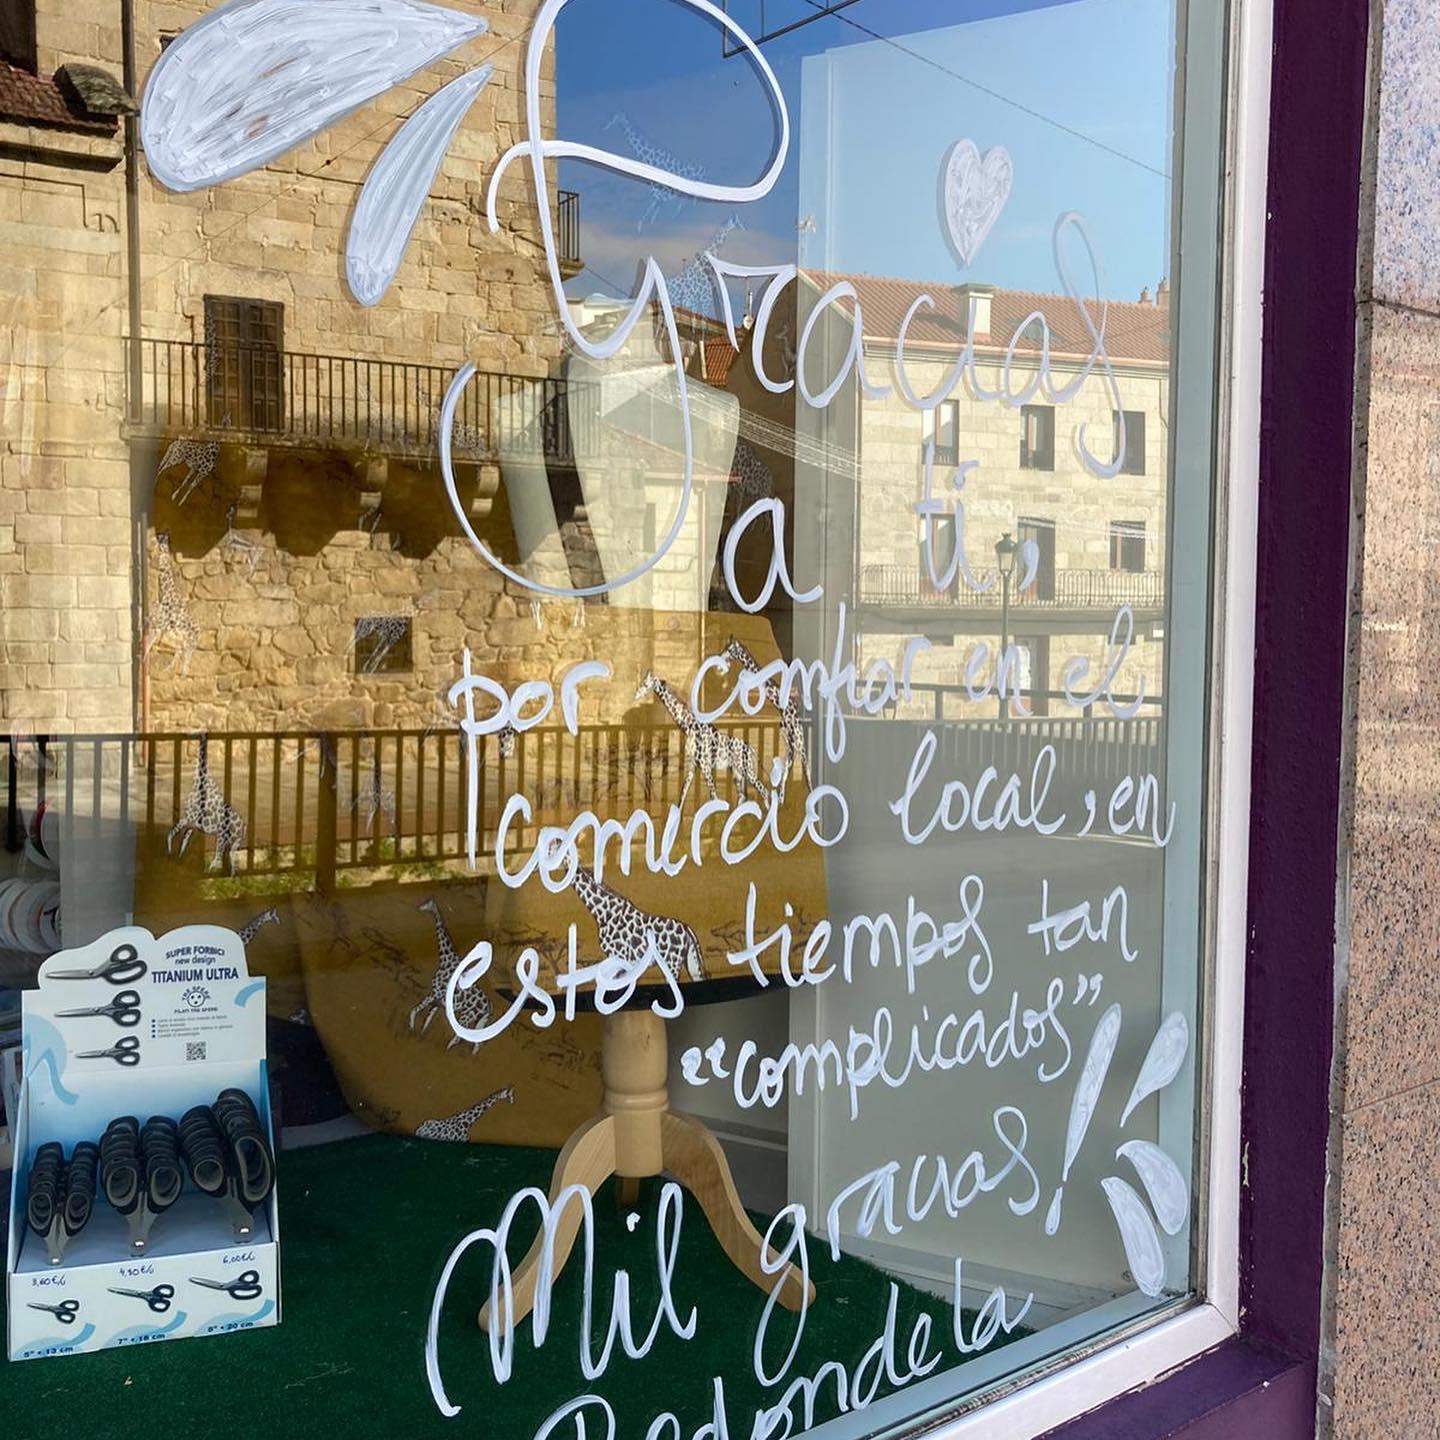 Gracias
a ti,
por confiar en el
comercio local, en
estos tiempos tan
"complicados"
Mil gracias!
Redondela
SUPER FORBICI
new design
TITANIUM ULTRA
3,60€/u
4,50€/u
6,00€/u
5" • 13 cm
7" • 18 cm
8" • 20 cm